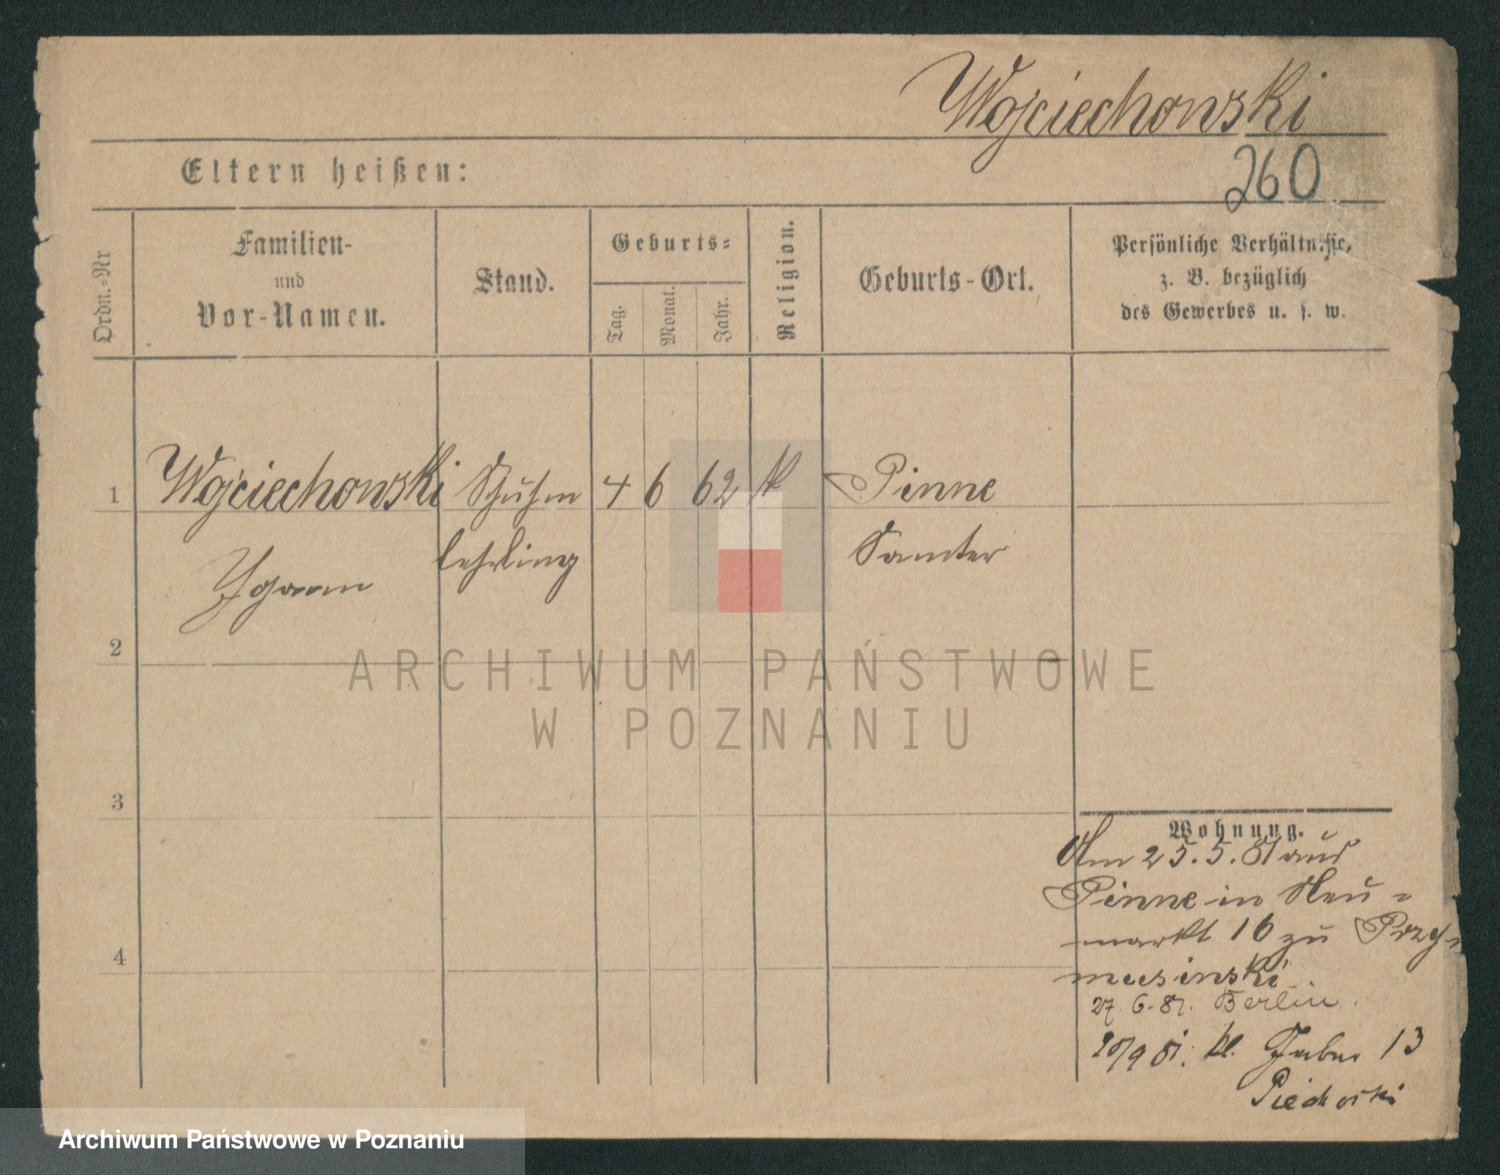 Wojciechowski
260
Eltern heißen:
Ordn.=Nr
Familien-
und
Vor-Namen.
Stand.
Geburts=
Tag.
Monat.
Jahr.
Religion.
Geburts-Ort.
Persönliche Verhältnisse,
z. B. bezüglich
des Gewerbes u. s. w.
1
Wojciechowski Schuhm 4 6 62 K Pinne
lehrling Samter
2
ARCHIWUM PAŃSTWOWE
W POZNANIU
3
Wohnung.
Am 25.5.81 aus
Pinne in Neu=
markt 16 zu
27. 6. 81. Berlin.
20/9 81. kl. 13
4
Archiwum Państwowe w Poznaniu